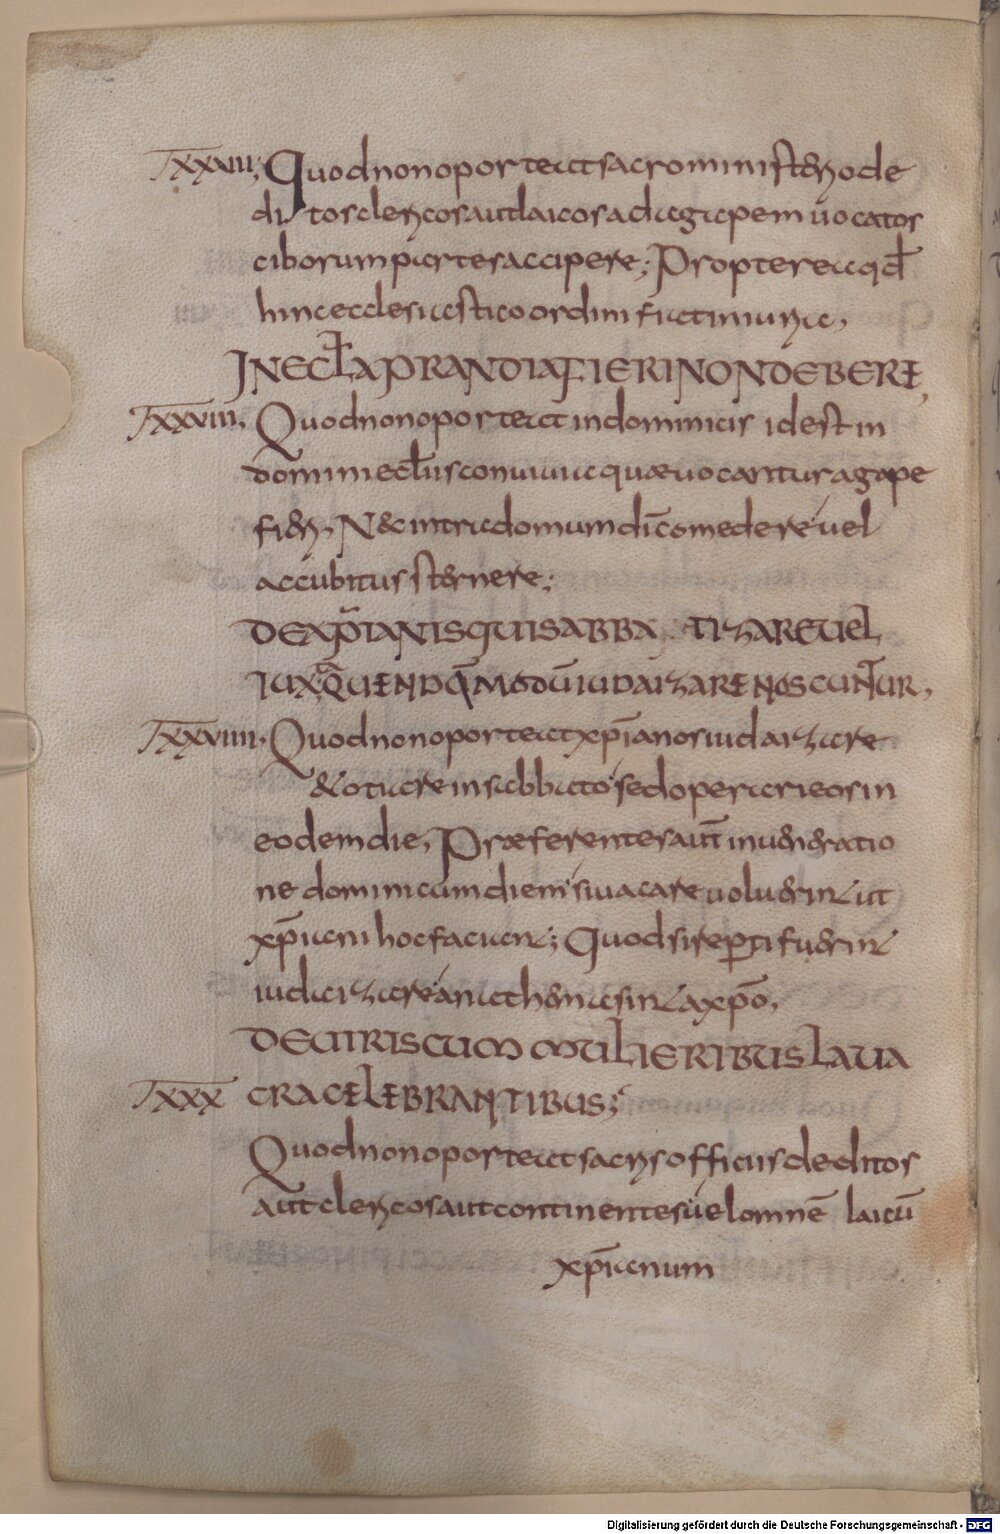 TXXVII; Quod non oporteat sacro ministerio de
ditos clericos aut laicos ad agapem uocatos
ciborum partes accipere; Propterea qđ
hinc ecclesiastico ordini fiat iniuria,
IN ECL̄A PRANDIA FIERI NON DEBERE,
TXXVIII, Quod non oporteat in dominicis id est in
domini ecl̄iis conuiuia quæ uocantur agape
fieri, N& intra domum dī comedere uel
accubitus sternere;
DE XP̄IANIS QUI SABBATIZARE UEL
IUXTA QUENDĀ MODŪ IUDAIZARE NOSCUNTUR,
TXXVIIII, Quod non oporteat xp̄ianos iudaizare
& otiare in sabbato sed operari eos in
eodem die, Præferentes aut̄ in ueneratio
ne dominicum diem si uacare uoluerint ut
xp̄iani hoc faciant; Quod si reperti fuerint
iudaizare anathema sint a xp̄o,
DE UIRIS CUM MULIERIBUS LAUA
TXXX CRA CELEBRANTIBUS;
Quod non oporteat sacris officiis deditos
aut clericos aut continentes uel omnē laicū
xp̄ianum
Digitalisierung gefördert durch die Deutsche Forschungsgemeinschaft - DFG